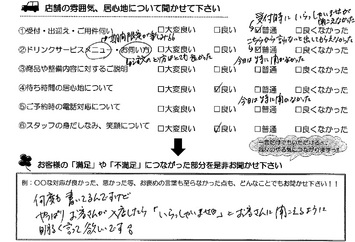 店舗の雰囲気、居心地について聞かせて下さい
①受付・出迎え・ご用件伺い □大変良い □良い ☑普通 □良くなかった
受付時に いらっしゃいませが
聞こえなかった
②ドリンクサービスメニュー・お伺い方 □大変良い □良い ☑普通 □良くなかった
③商品や整備内容に対するご説明 □大変良い □良い ☑普通 □良くなかった
今日は特に聞かなかった
④待ち時間の居心地について □大変良い ☑良い □普通 □良くなかった
今日は特に聞かなかった
⑤ご予約時の電話対応について □大変良い □良い □普通 □良くなかった
⑥スタッフの身だしなみ、笑顔について □大変良い ☑良い □普通 □良くなかった
お客様の「満足」や「不満足」につながった部分を是非お聞かせ下さい
例：○○な対応が良かった、悪かった等、お褒めの言葉も至らなかった点も、どんなことでもお聞かせ下さい！！
何度も書いてるんですけど
やっぱり お客さんが入店したら「いらっしゃいませ」とお客さんに聞こえるように
明るく言って欲しいです。